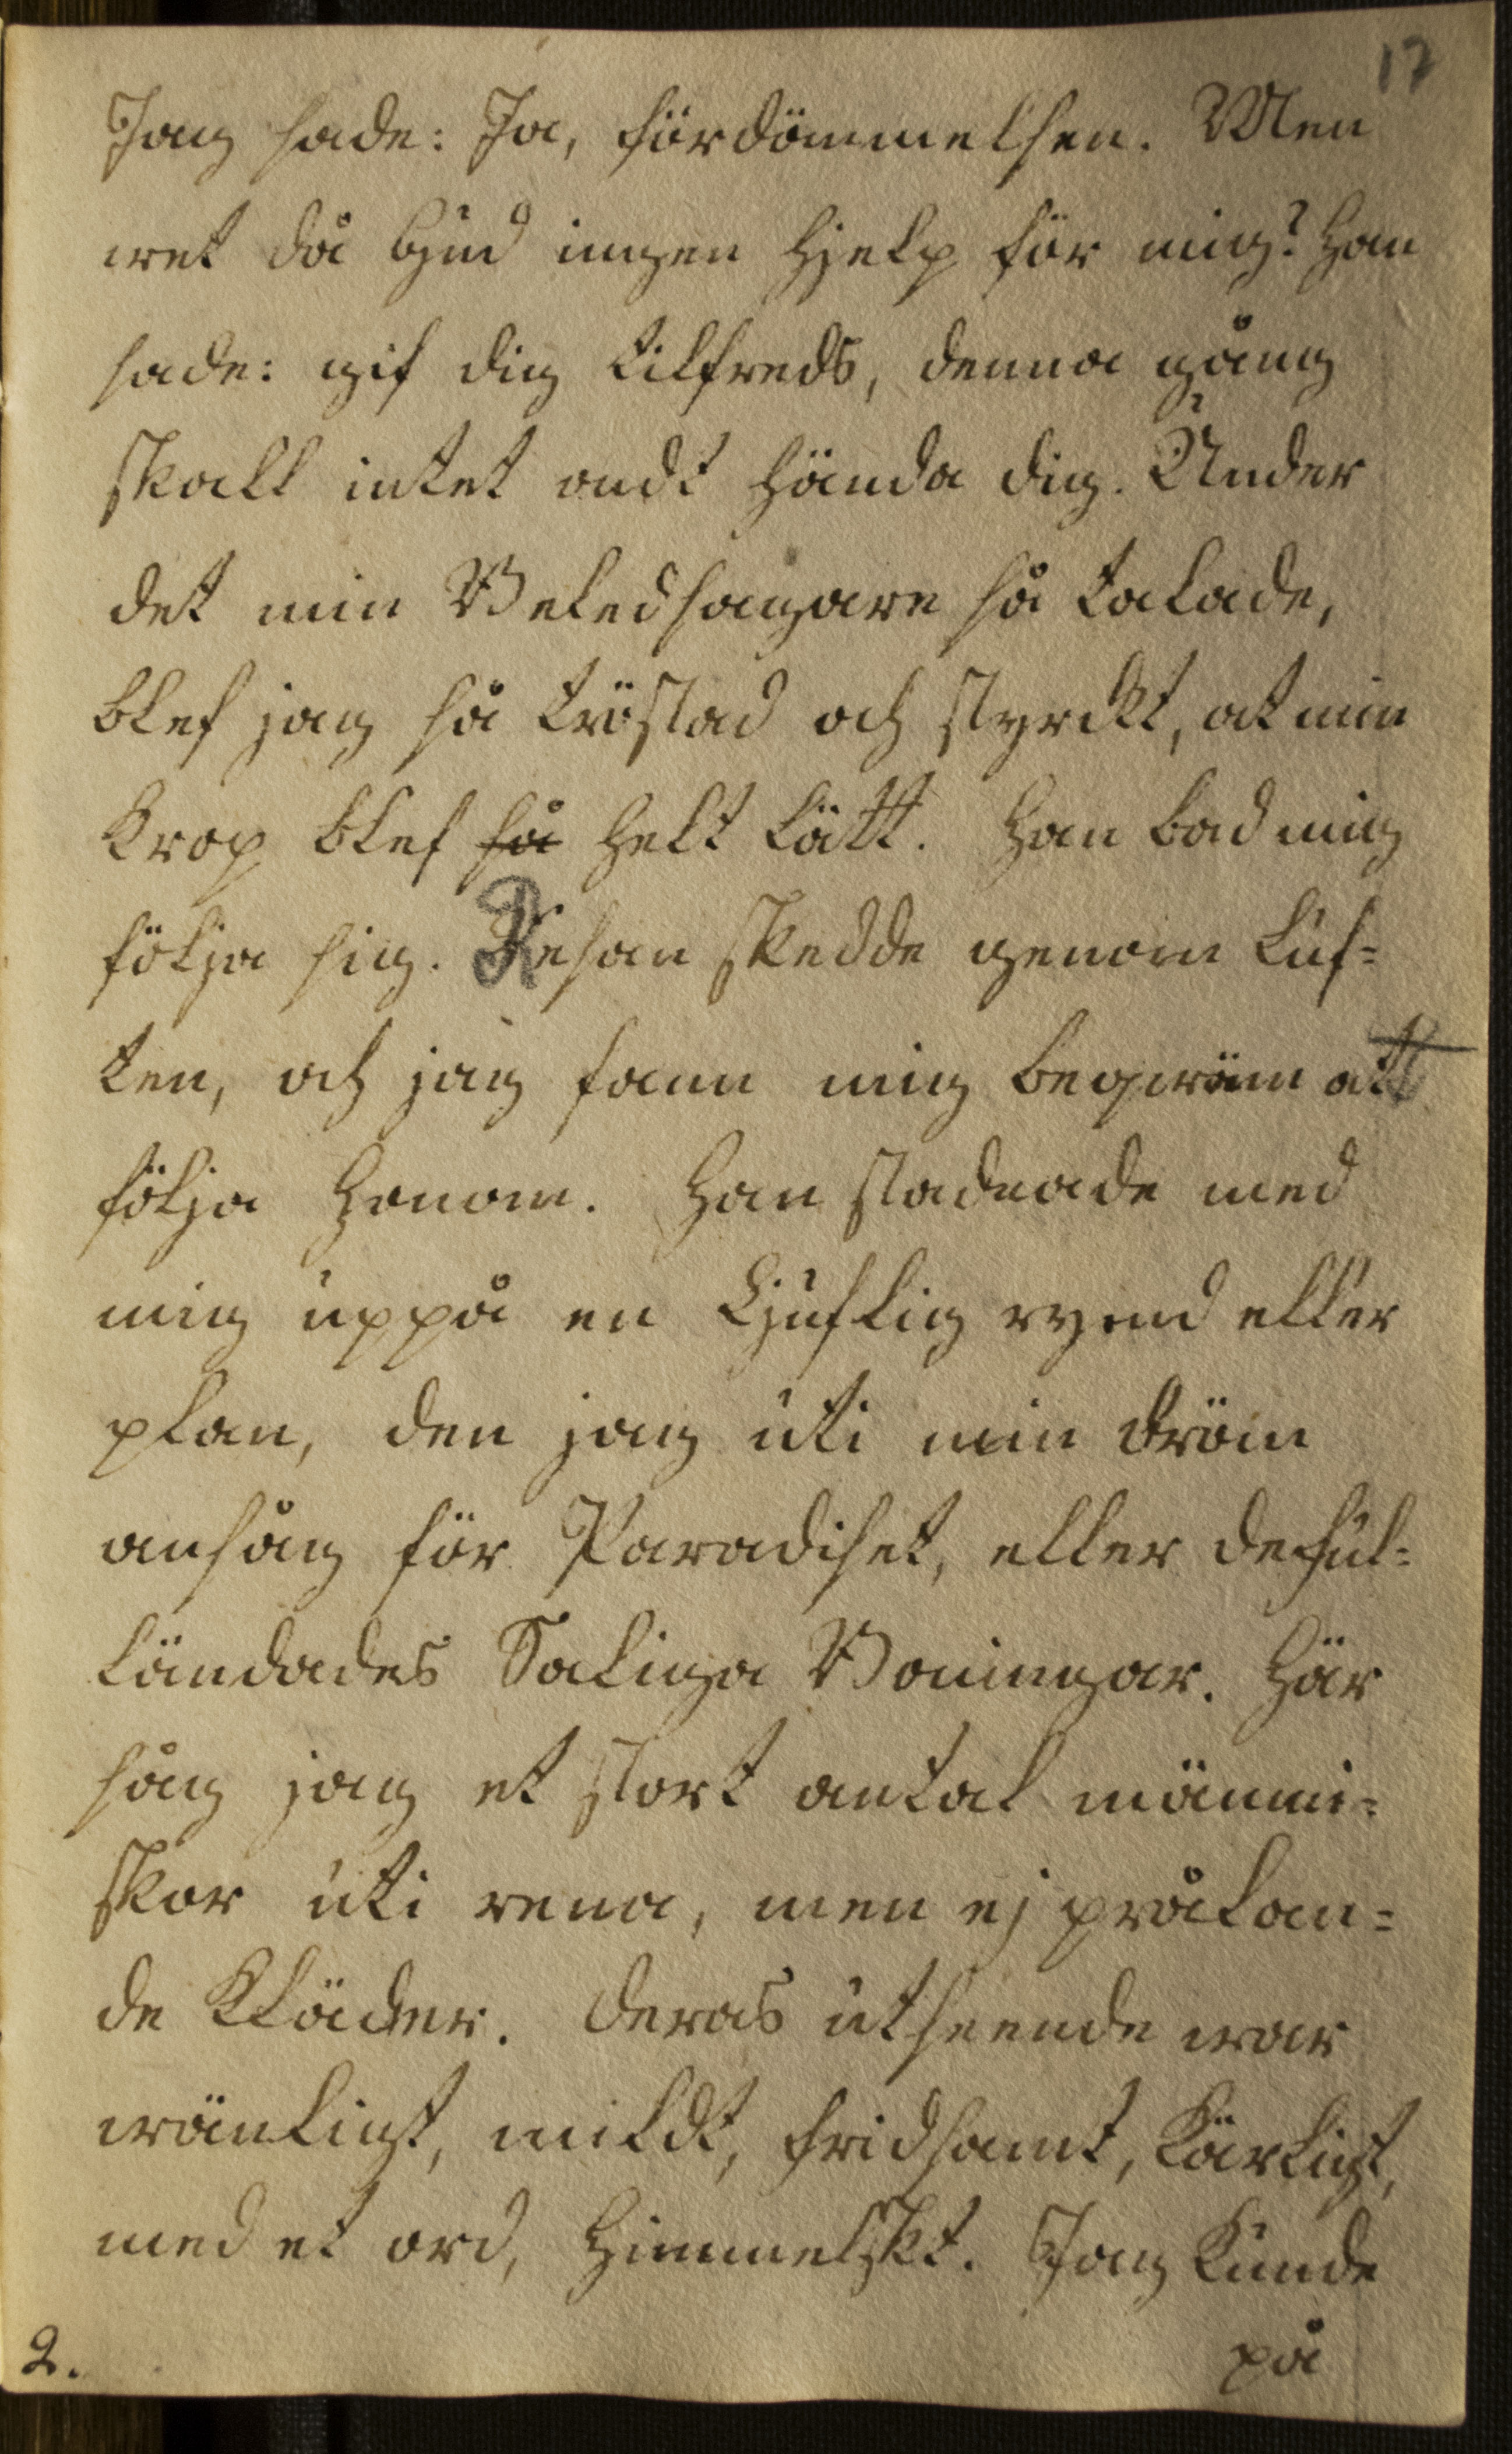 17
Jag sade: Ja, fördömmelsen. Men
wet då Gud ingen hjelp för mig? Han
sade: gif dig tilfreds, denna gång
skall intet ondt hända dig. Under
det min Beledsagare så talade,
blef jag så tröstad och styrckt, at min
Krop blef så helt lätt. Han bad mig
följa sig. Resan skedde genom luf=
ten, och jag fann mig beqwäm att
följa honom. Han stadnade med
mig uppå en Ljuflig rymd eller
plan, den jag uti min dröm
ansåg för Paradiset, eller de ful=
ländades Saliga Boningar. Här
såg jag et stort antal männi=
skor uti rena, men ej prålan=
de Kläder. Deras utseende war
wänligt, mildt, fridsamt, kärligt,
med et ord, himmelskt. Jag kunde
2.
på